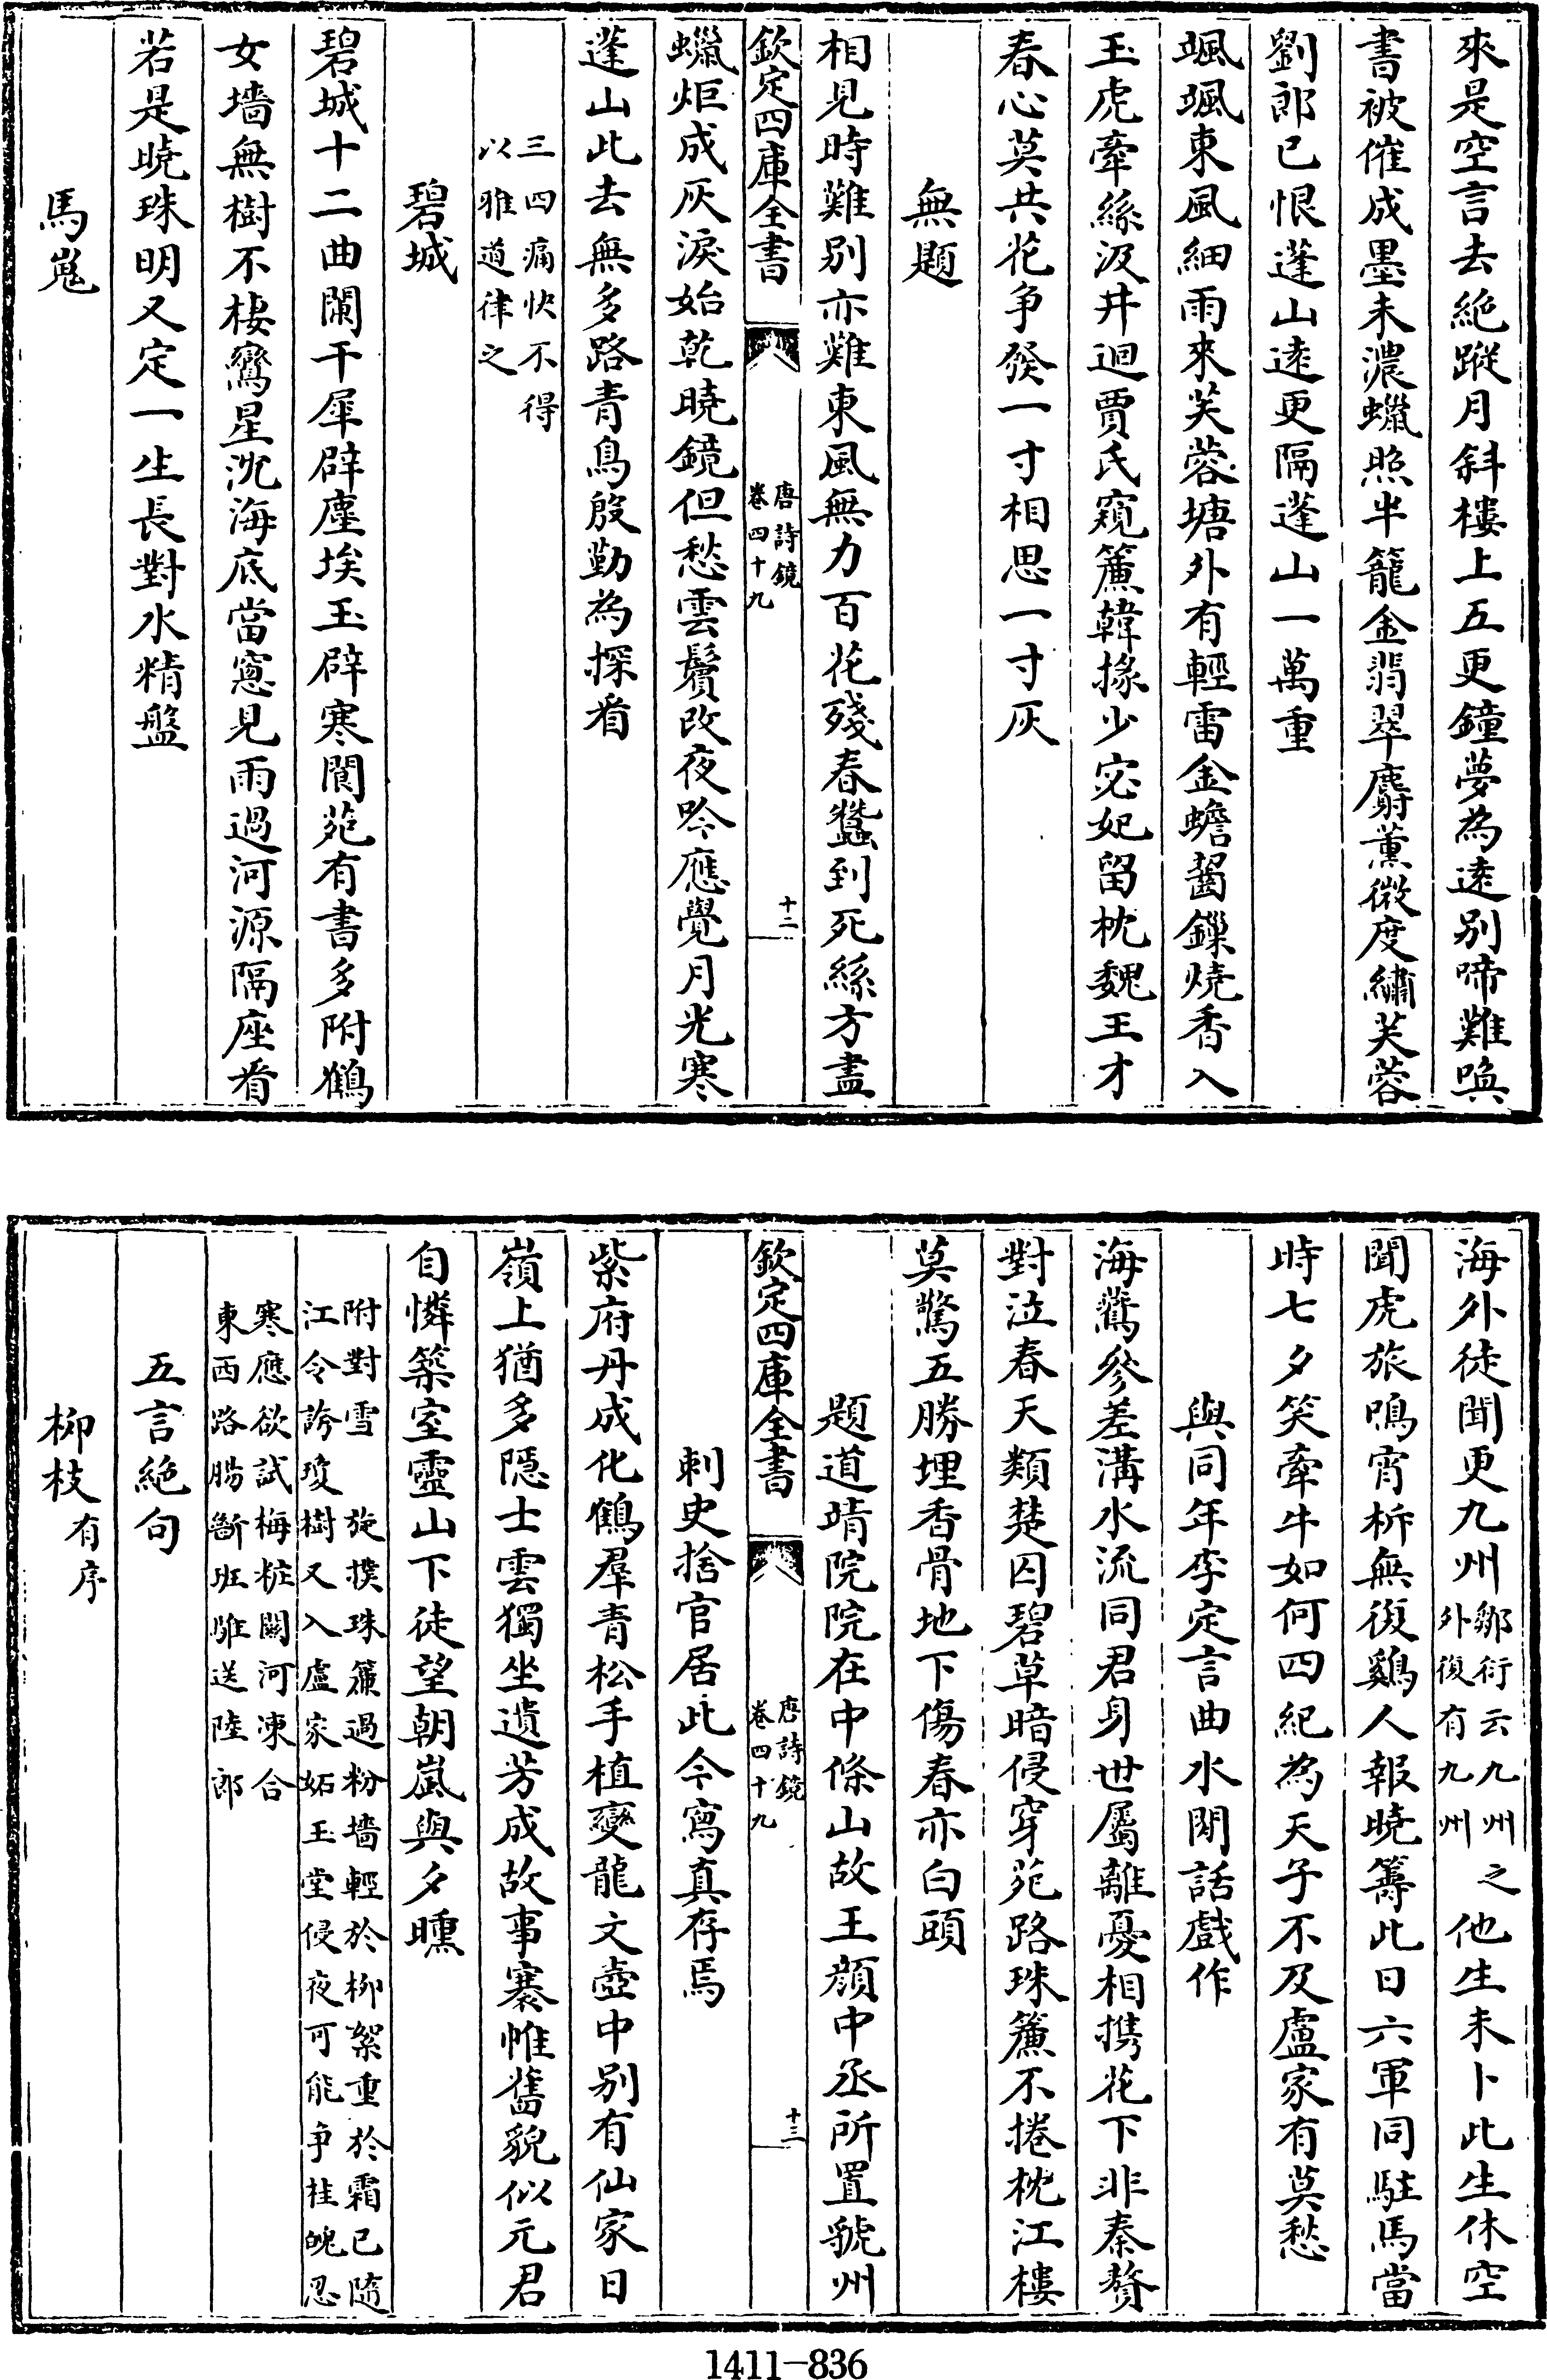 來是空言去絶蹤月斜樓上五更鐘夢為逺别啼難喚
書被催成墨未濃蠟照半籠金翡翠麝薰微度繡芙蓉
劉郎已恨蓬山逺更隔蓬山一萬重
颯颯東風細雨來芙蓉塘外有輕雷金蟾齧鏁燒香入
玉虎牽絲汲井迴賈氏窺簾韓掾少宓妃留枕魏王才
春心莫共花争發一寸相思一寸灰
無題
相見時難别亦難東風無力百花殘春蠶到死絲方盡
欽定四庫全書
唐詩鏡
卷四十九
十二
蠟炬成灰淚始乾曉鏡但愁雲鬢改夜吟應覺月光寒
蓬山此去無多路青鳥殷勤為探看
三四痛快不得
以雅道律之
碧城
碧城十二曲闌干犀辟塵埃玉辟寒閬苑有書多附鶴
女墻無樹不棲鸞星沈海底當窻見雨過河源隔座看
若是曉珠明又定一生長對水精盤
馬嵬
海外徒聞更九州
鄒衍云九州之
外復有九州
他生未卜此生休空
聞虎旅鳴宵柝無復鷄人報曉籌此日六軍同駐馬當
時七夕笑牽牛如何四紀為天子不及盧家有莫愁
與同年李定言曲水閒話戲作
海鷰參差溝水流同君身世屬離憂相携花下非秦贅
對泣春天類楚囚碧草暗侵穿苑路珠簾不捲枕江樓
莫驚五勝埋香骨地下傷春亦白頭
題道靖院院在中條山故王顔中丞所置虢州
欽定四庫全書
唐詩鏡
卷四十九
十三
刺史捨官居此今寫真存焉
紫府丹成化鶴羣青松手植變龍文壺中别有仙家日
嶺上猶多隠士雲獨坐遺芳成故事褰帷舊貌似元君
自憐築室靈山下徒望朝嵐與夕曛
附對雪 旋撲珠簾過粉墻輕於柳絮重於霜已隨
江令誇瓊樹又入盧家妬玉堂侵夜可能争桂魄忍
寒應欲試梅粧關河凍合
東西路腸斷班騅送陸郎
五言絶句
柳枝有序
1411-836